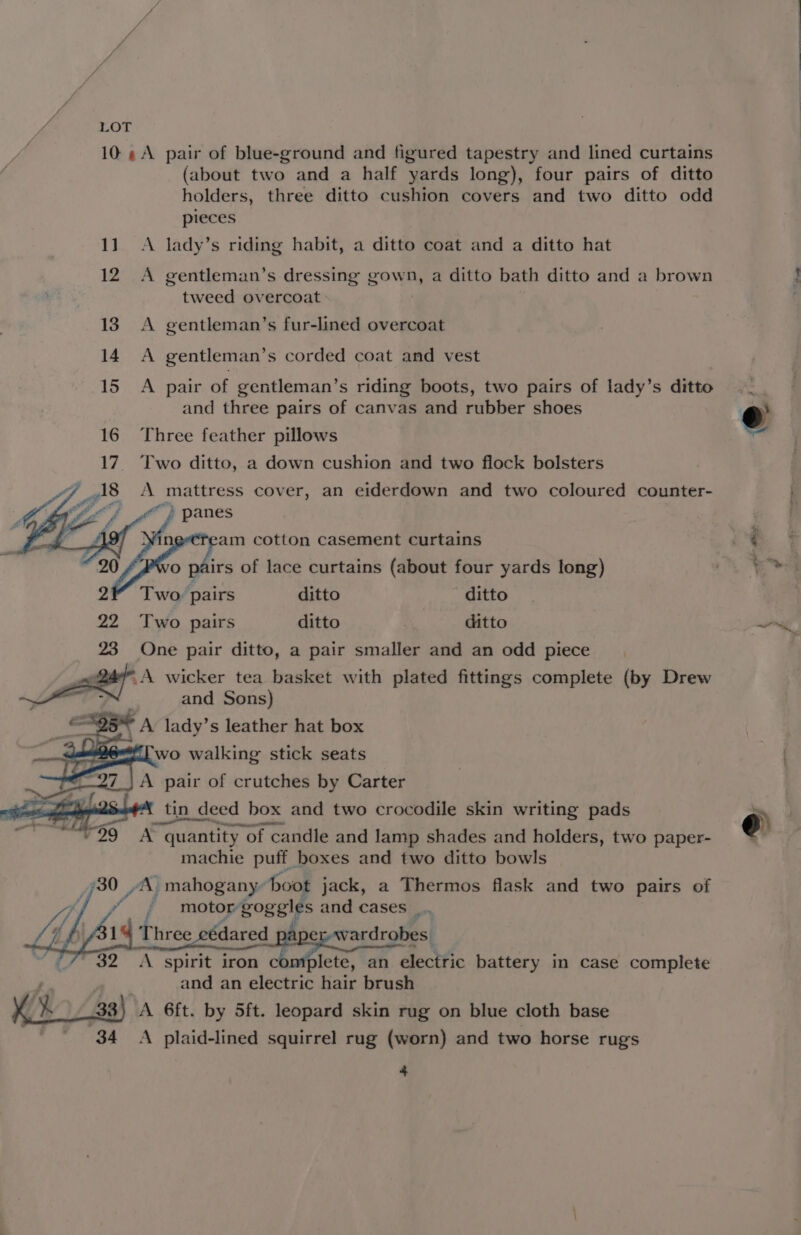 LOT
10 A pair of blue-ground and figured tapestry and lined curtains
(about two and a half yards long), four pairs of ditto
holders, three ditto cushion covers and two ditto odd
pieces
11 A lady's riding habit, a ditto coat and a ditto hat
12 A gentleman's dressing gown, a ditto bath ditto and a brown
tweed overcoat
13 A gentleman's fur-lined overcoat
14 A gentleman's corded coat and vest
15 A pair of gentleman's riding boots, two pairs of lady's ditto
and three pairs of canvas and rubber shoes
16 Three feather pillows
17 Two ditto, a down cushion and two flock bolsters
18 A mattress cover, an eiderdown and two coloured counter-
panes
19 Nine cream cotton casement curtains
20 Two pairs of lace curtains (about four yards long)
21 Two pairs ditto ditto
22 Two pairs ditto ditto
23 One pair ditto, a pair smaller and an odd piece
24 A wicker tea basket with plated fittings complete (by Drew
and Sons)
25 A lady's leather hat box
26 Two walking stick seats
27 A pair of crutches by Carter
28 A tin deed box and two crocodile skin writing pads
29 A quantity of candle and lamp shades and holders, two paper-
machie puff boxes and two ditto bowls
30 A mahogany boot jack, a Thermos flask and two pairs of
motor goggles and cases
31 Three cedared paper wardrobes
32 A spirit iron complete, an electric battery in case complete
and an electric hair brush
33 A 6ft. by 5ft. leopard skin rug on blue cloth base
34 A plaid-lined squirrel rug (worn) and two horse rugs
4